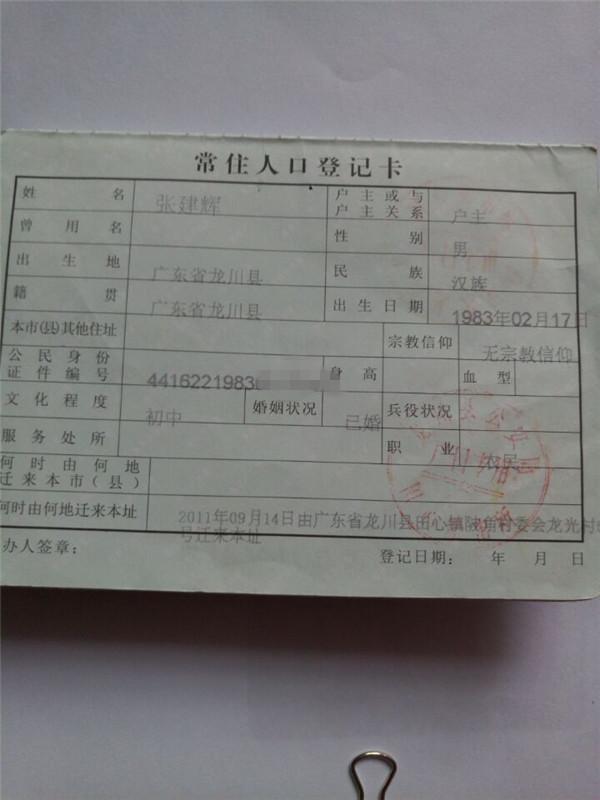 常住人口登记卡
姓 名 张建辉 户主或与户主关系 户主
曾用名 性别 男
出生地 广东省龙川县 民族 汉族
籍贯 广东省龙川县 出生日期 1983年02月17日
本市(县)其他住址 宗教信仰 无宗教信仰
公民身份证件编号 4416221983 身高 血型
文化程度 初中 婚姻状况 已婚 兵役状况
服务处所 职业 农民
何时由何地迁来本市(县)
何时由何地迁来本址 2011年09月14日由广东省龙川县田心镇陂角村委会龙光村
号迁来本址
办人签章: 登记日期: 年 月 日